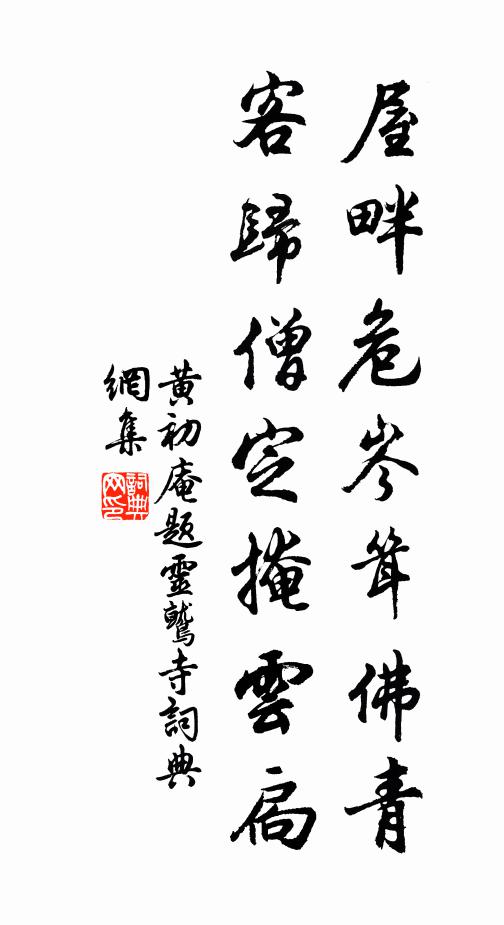 屋畔危岑聳佛青
客歸僧定掩雲扃
黄初庵題靈鷲寺詞典
網集
詞典
网印